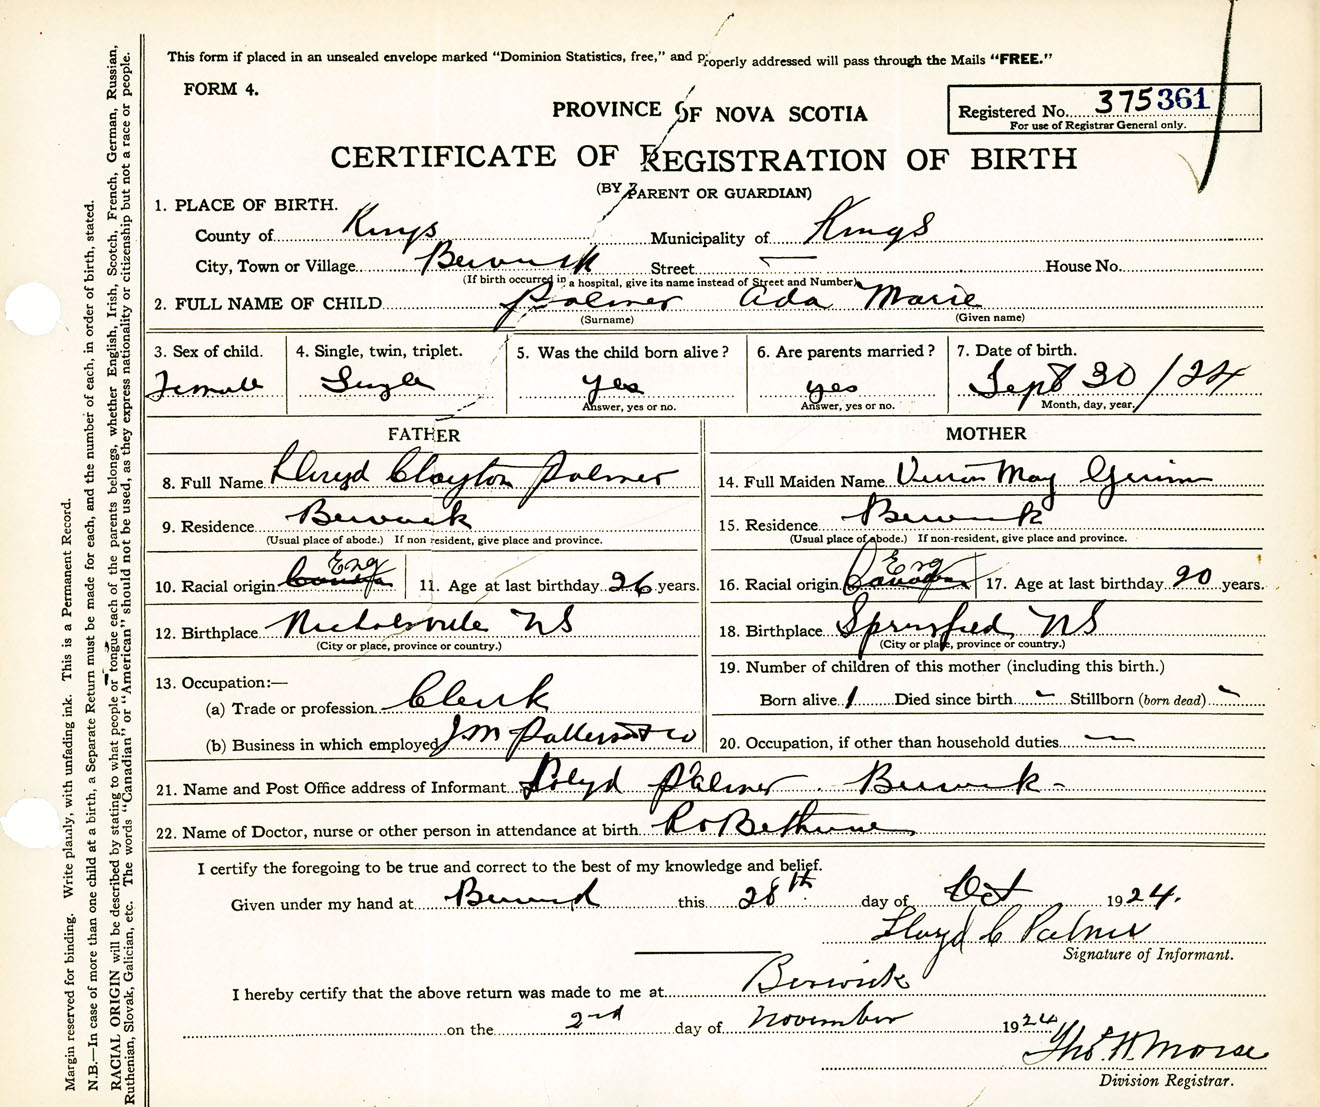 This form if placed in an unsealed envelope marked "Dominion Statistics, free," and properly addressed will pass through the Mails "FREE."
FORM 4.
PROVINCE OF NOVA SCOTIA
Registered No. 375361
For use of Registrar General only.
CERTIFICATE OF REGISTRATION OF BIRTH
(BY PARENT OR GUARDIAN)
1. PLACE OF BIRTH.
County of Kings Municipality of Kings
City, Town or Village Berwick Street — House No.
(If birth occurred in a hospital, give its name instead of Street and Number)
2. FULL NAME OF CHILD Palmer Ada Marie
(Surname) (Given name)
3. Sex of child. 4. Single, twin, triplet. 5. Was the child born alive? 6. Are parents married? 7. Date of birth.
Female Single yes yes Sept 30/24
Answer, yes or no. Answer, yes or no. Month, day, year.
FATHER MOTHER
8. Full Name Lloyd Clayton Palmer 14. Full Maiden Name May
9. Residence Berwick 15. Residence Berwick
(Usual place of abode.) If non resident, give place and province. (Usual place of abode.) If non-resident, give place and province.
10. Racial origin Eng 11. Age at last birthday 26 years. 16. Racial origin Canadian Eng 17. Age at last birthday 20 years.
12. Birthplace Nicholsville NS 18. Birthplace Springfield NS
(City or place, province or country.) (City or place, province or country.)
13. Occupation:— 19. Number of children of this mother (including this birth.)
(a) Trade or profession Clerk Born alive 1 Died since birth - Stillborn (born dead) -
(b) Business in which employed J M Patterson & Co 20. Occupation, if other than household duties —
21. Name and Post Office address of Informant Lloyd Palmer Berwick -
22. Name of Doctor, nurse or other person in attendance at birth Bethune
I certify the foregoing to be true and correct to the best of my knowledge and belief.
Given under my hand at Berwick this 28th day of Oct 1924.
Lloyd C Palmer
Signature of Informant.
I hereby certify that the above return was made to me at Berwick
on the 2nd day of November 1924
Thos. H. Morse
Division Registrar.
Margin reserved for binding. Write plainly, with unfading ink. This is a Permanent Record.
N.B.—In case of more than one child at a birth, a Separate Return must be made for each, and the number of each, in order of birth, stated.
RACIAL ORIGIN will be described by stating to what people or tongue each of the parents belongs, whether English, Irish, Scotch, French, German, Russian,
Ruthenian, Slovak, Galician, etc. The words "Canadian" or "American" should not be used, as they express nationality or citizenship but not a race or people.